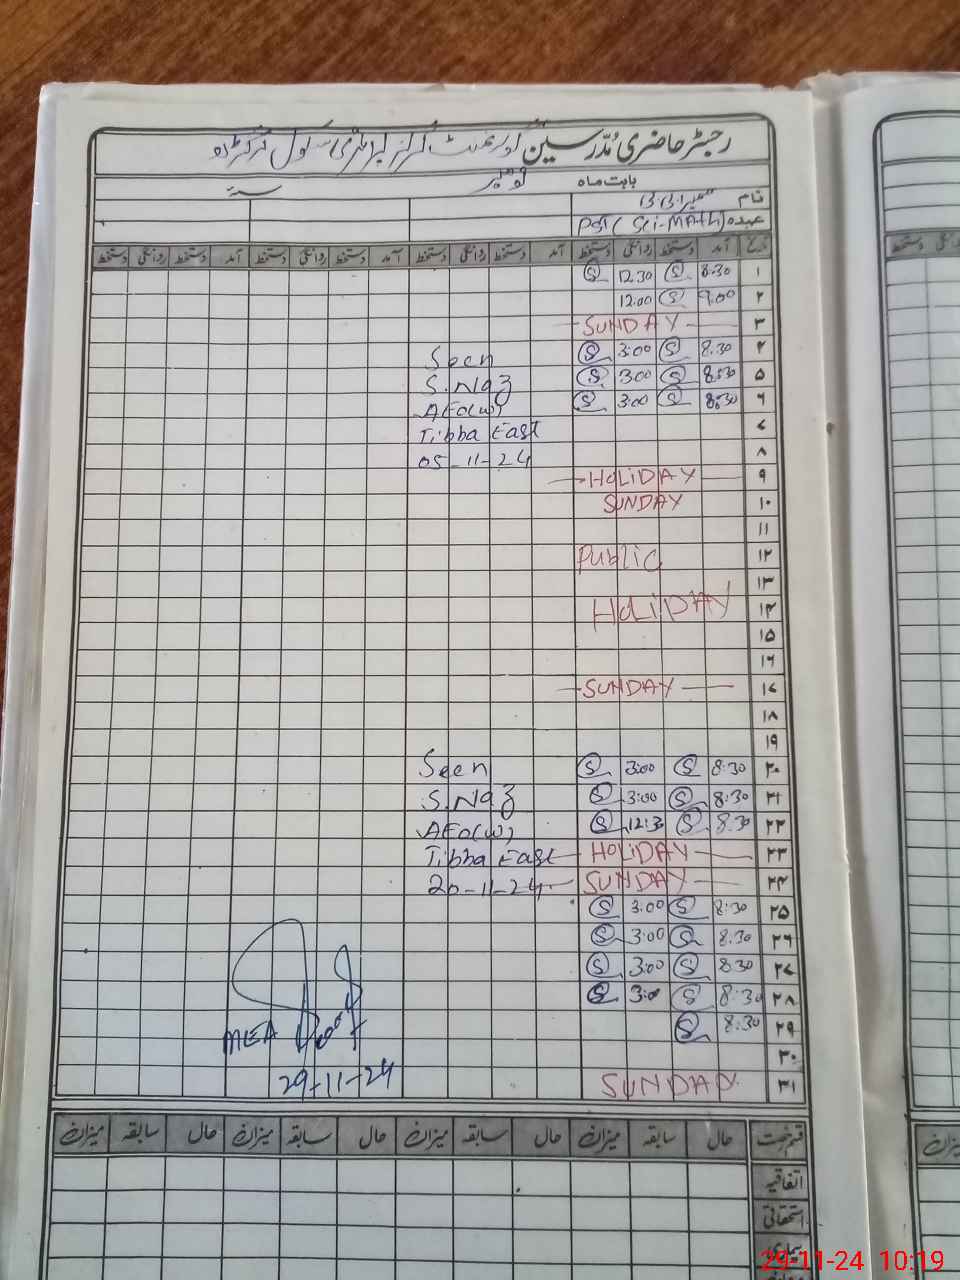 رجسٹر حاضری مُدرسین گورنمنٹ گرلز ایلیمنٹری سکول
بابت ماہ نومبر سنہ
نام
عہدہ PST (Sci-MATH)
تاریخ آمد دستخط روانگی دستخط آمد دستخط روانگی دستخط آمد دستخط روانگی دستخط آمد دستخط روانگی دستخط
۱ 8:30 S 12.30 S
۲ 9:00 S 12.00
۳ SUNDAY
۴ 8.30 S 3:00 S Seen
۵ 8:30 S 3:00 S S.Naz
۶ 8:30 S 3:00 S AEO(W)
۷ Tibba East
۸ 05-11-24
۹ HOLIDAY
۱۰ SUNDAY
۱۱
۱۲ Public
۱۳
۱۴ HOLIDAY
۱۵
۱۶
۱۷ SUNDAY
۱۸
۱۹
۲۰ 8:30 S 3:00 S Seen
۲۱ 8:30 S 3:00 S S.Naz
۲۲ 8.30 S 12:30 S AEO(W)
۲۳ HOLIDAY Tibba East
۲۴ SUNDAY 20-11-24
۲۵ 8:30 S 3:00 S
۲۶ 8.30 S 3:00 S
۲۷ 8.30 S 3:00 S
۲۸ 8:30 S 3:00 S
۲۹ 8:30 S MEA
۳۰
۳۱ SUNDAY 29-11-24
قسم رخصت حال سابقہ میزان حال سابقہ میزان حال سابقہ میزان حال سابقہ میزان
اتفاقیہ
استحقاقی
بیماری
29-11-24 10:19